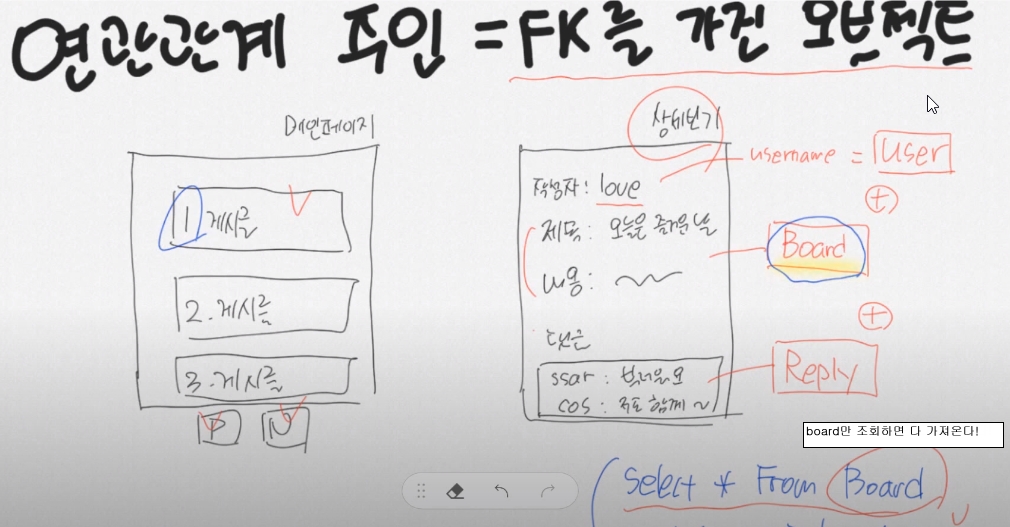 연관관계 주인 = FK를 가진 오브젝트
메인페이지
1 게시글
2. 게시글
3. 게시글
P N
상세보기
작성자: love
제목: 오늘은 즐거운 날
내용:
댓글
ssar :
cos :
username = User
+
Board
+
Reply
board만 조회하면 다 가져온다!
Select * From Board